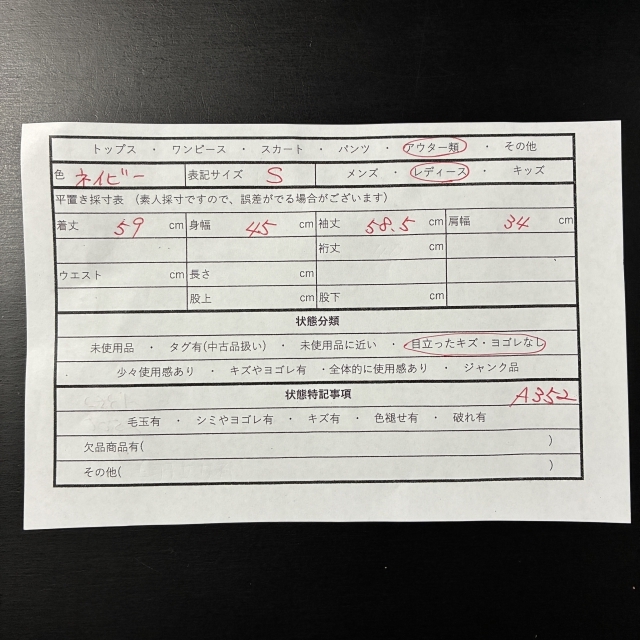 トップス ・ ワンピース ・ スカート ・ パンツ ・ アウター類 ・ その他
色 ネイビー 表記サイズ S メンズ ・ レディース ・ キッズ
平置き採寸表 （素人採寸ですので、誤差がでる場合がございます）
着丈 59 cm 身幅 45 cm 袖丈 58.5 cm 肩幅 34 cm
裄丈 cm
ウエスト cm 長さ cm
股上 cm 股下 cm
状態分類
未使用品 ・ タグ有(中古品扱い) ・ 未使用品に近い ・ 目立ったキズ・ヨゴレなし
少々使用感あり ・ キズやヨゴレ有 ・全体的に使用感あり ・ ジャンク品
状態特記事項 A352
毛玉有 ・ シミやヨゴレ有 ・ キズ有 ・ 色褪せ有 ・ 破れ有
欠品商品有( )
その他( )